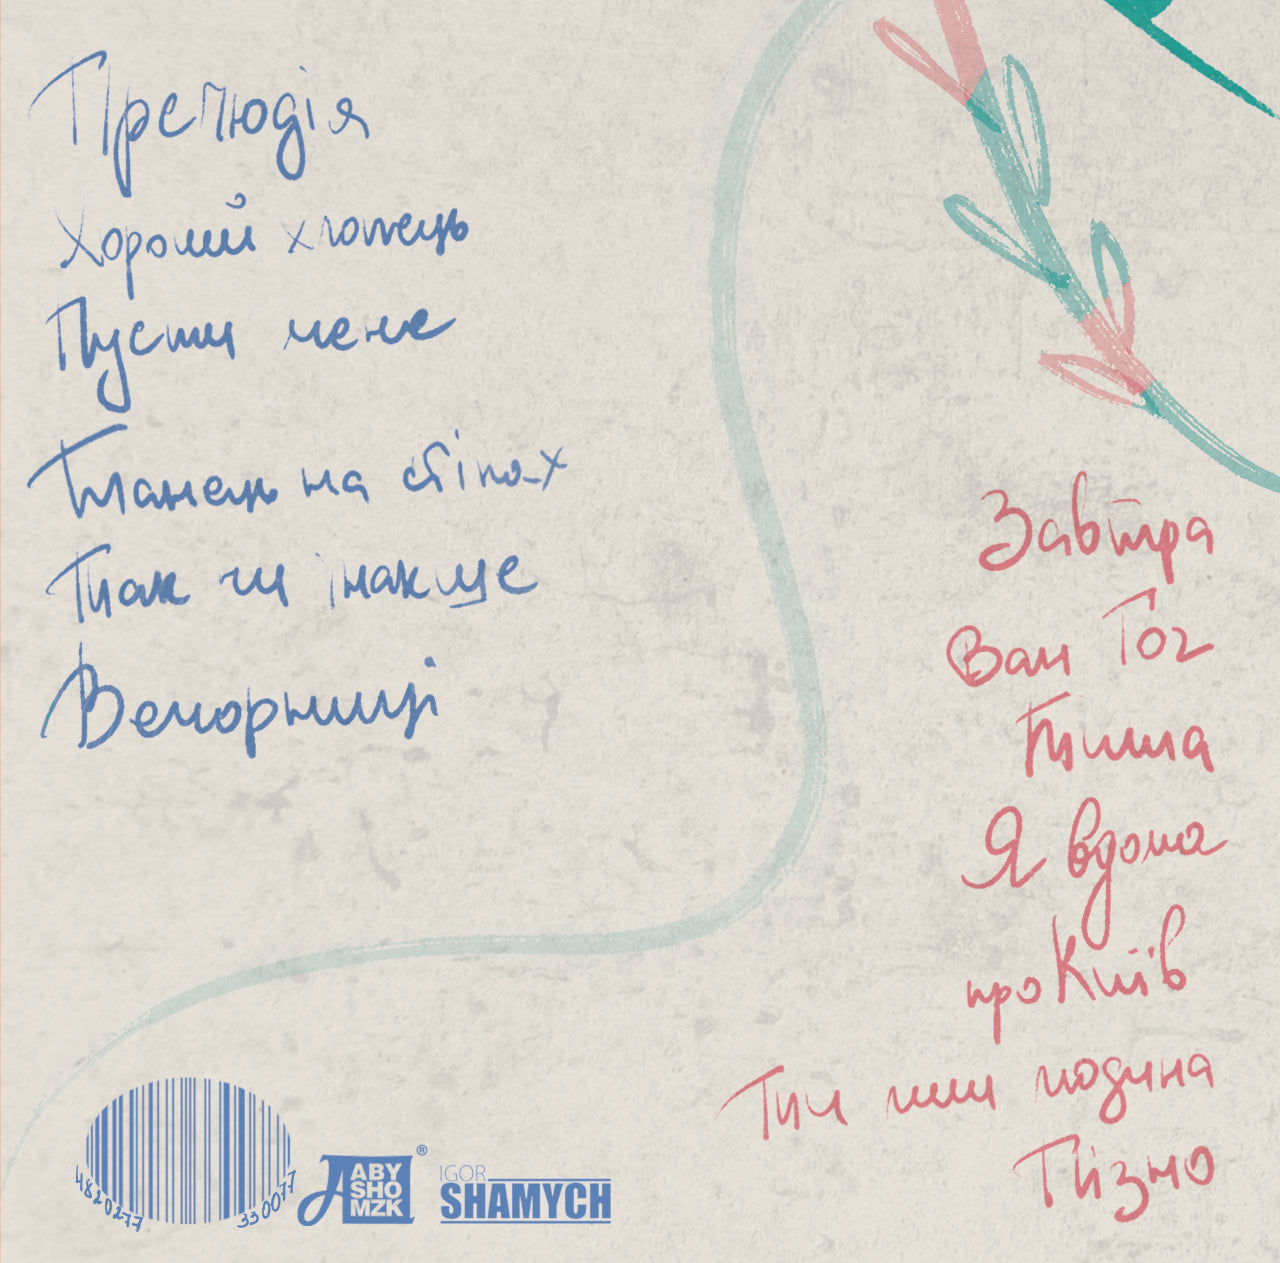 Прелюдія
Хороший хлопець
Пусти мене
Танець на стінах
Так чи інакше
Вечорниці
Завтра
Ван Гог
Тиша
Я вдома
про Київ
Ти чи людина
Пізно
4820277 330077
ABY
SHO
MZK
®
IGOR
SHAMYCH